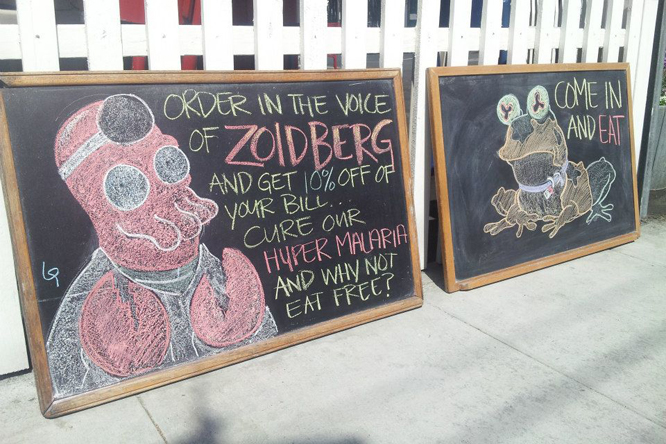 ORDER IN THE VOICE
OF ZOIDBERG
AND GET 10% OFF OF
YOUR BILL...
CURE OUR
HYPER MALARIA
AND WHY NOT
EAT FREE?
COME IN
AND EAT